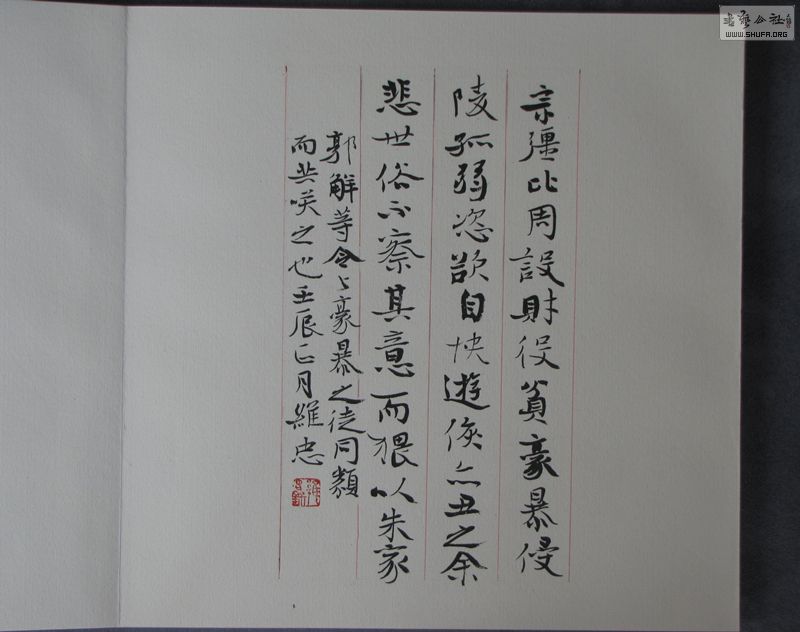 宗彊比周設財役貧豪暴侵
陵孤弱恣欲自快遊俠亦丑之余
悲世俗不察其意而猥以朱家
郭解等令与豪暴之徒同類
而共笑之也壬辰正月維忠
書法公社
WWW.SHUFA.ORG